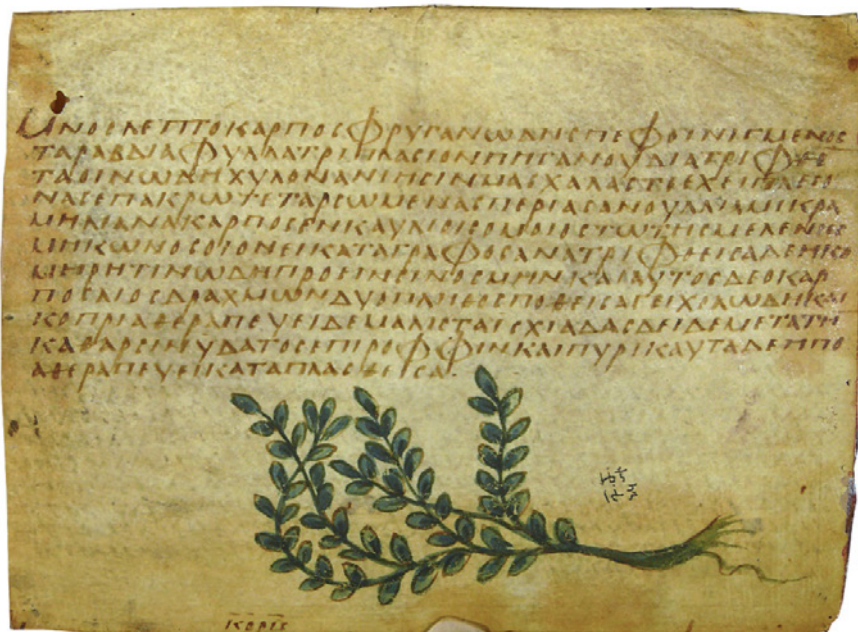 ΜΝΟϹΛΕΠΤΟΚΑΡΠΟϹΦΡΥΓΑΝΩΔΗϹΠΕΦΟΙΝΙΓΜΕΝΟϹ
ΤΑΡΑΒΔΙΑΦΥΛΛΑΤΡΙΠΛΑϹΙΟΝΠΗΓΑΝΟΥΔΙΑΤΡΙΦΘΕ
ΤΑΟΙΝΩΔΗΧΥΛΟΝΑΝΙΗϹΙΝΜΑϹΧΑΛΑϹΤΕΕΧΕΙΠΛΕΟ
ΝΑϹΕΠΑΚΡΩΤΕΤΑΡϹΩΜΕΝΑϹΠΕΡΙΑϹΑΝΟΥΛΛΙΑΜΙΚΡΑ
ΜΗΛΙΑΝΑΚΑΡΠΟϹΕΝΚΑΥΛΙΟΙϹΟΜΟΙΟϹΤΩΤΗϹΜΕΛΕΝΗϹ
ΜΗΚΩΝΟϹΟΙΟΝΕΙΚΑΤΑΓΡΑΦΟϹΑΝΑΤΡΙΦΘΕΙϹΑΔΕΗΚΟ
ΜΗΡΗΤΙΝΩΔΗΠΡΟΕΙΝΕΙΝΟϹΜΗΝΚΑΙΑΥΤΟϹΔΕΟΚΑΡ
ΠΟϹΛΙΟϹΔΡΑΧΜΩΝΔΥΟΠΛΗΘΟϹΠΟΘΕΙϹΑΓΕΙΧΟΛΩΔΗΚΑΙ
ΚΟΠΡΙΑΘΕΡΑΠΕΥΕΙΔΕΜΑΛΙϹΤΑΙϹΧΙΑΔΑϹΔΕΙΔΕΜΕΤΑΤΗ
ΚΑΘΑΡϹΙΝΥΔΑΤΟϹΕΠΙΡΟΦΦΙΝΚΑΙΠΥΡΙΚΑΥΤΑΔΕΗΠΟ
ΑΘΕΡΑΠΕΥΕΙΚΑΤΑΠΛΑϹΘΕΙϹΑ.
ΚΟΡΙϹ